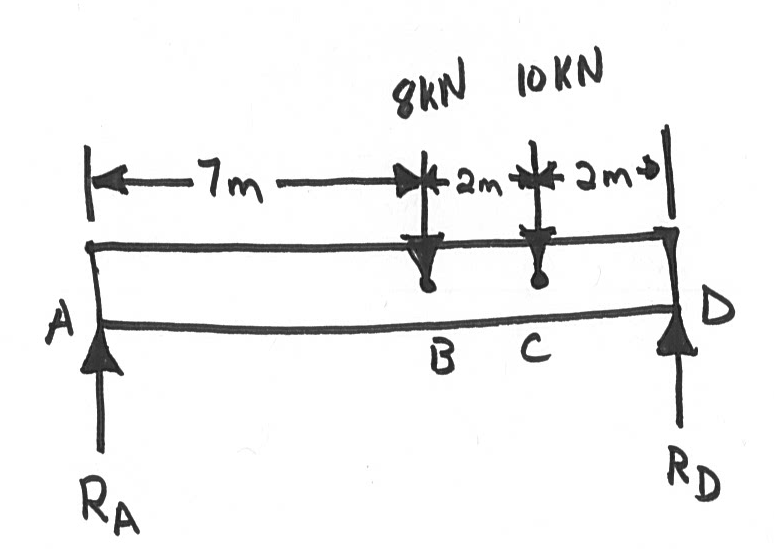 8KN 10KN
7m 2m 2m
A D
B C
RA RD